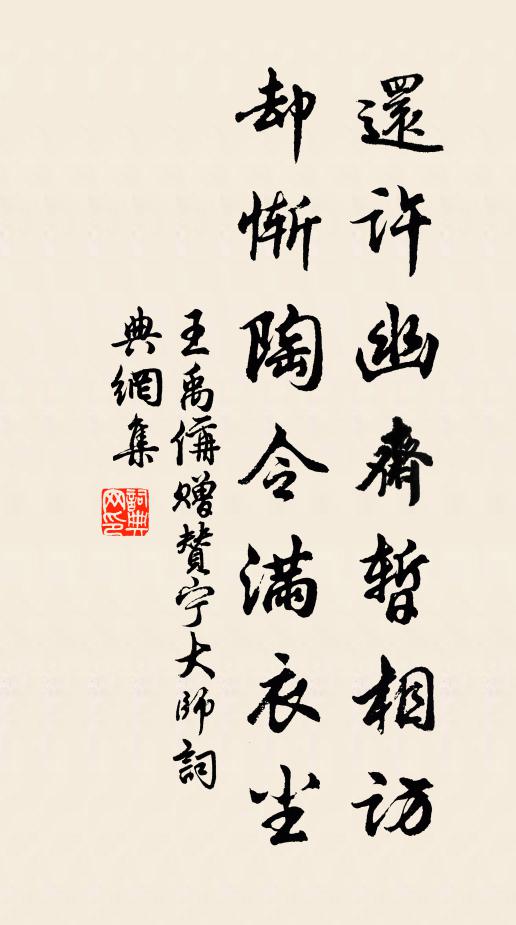 還許幽齋暫相訪
却慚陶令滿衣尘
王禹偁贈贊宁大师詞
典網集
詞典网印